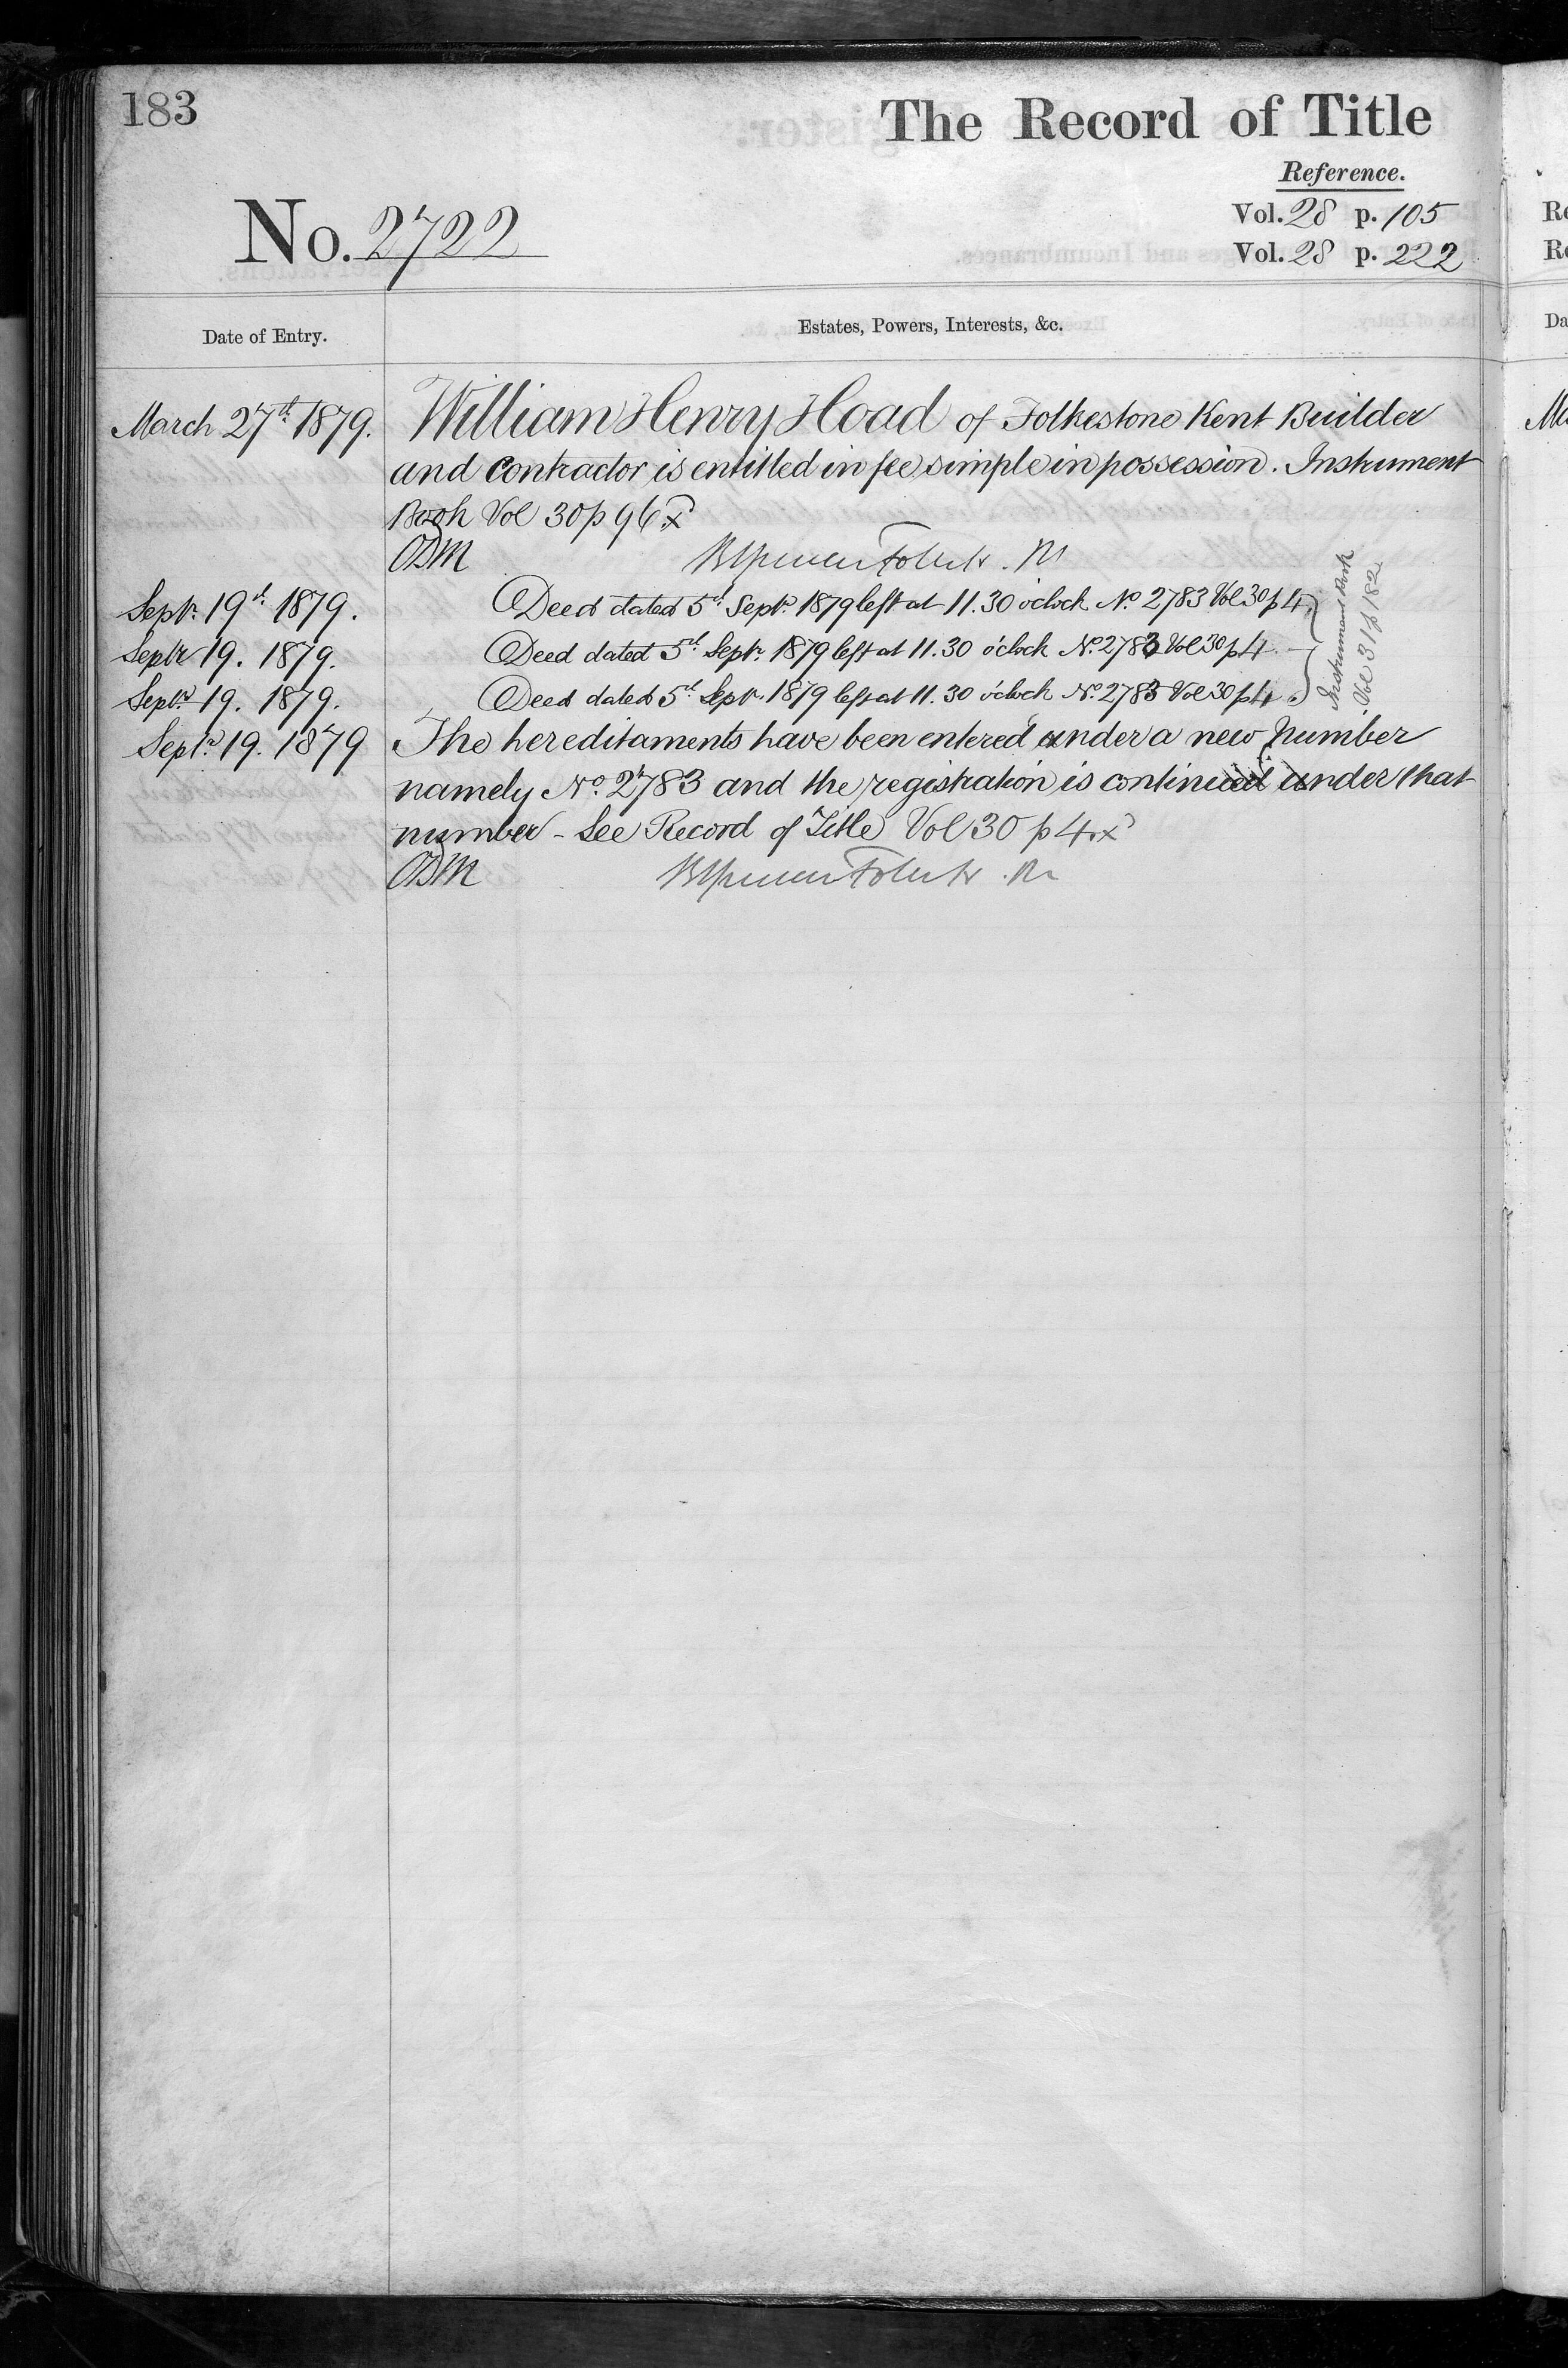 183
The Record of Title
Reference.
No. 2722
Vol. 28 p. 105
Vol. 28 p. 222
Date of Entry.
Estates, Powers, Interests, &c.
March 27th 1879.
William Henry Hoad of Folkestone Kent Builder
and Contractor is entitled in fee simple in possession. Instrument
Book Vol 30 p 96 x
ODM
Septr. 19th 1879.
Deed dated 5th Septr. 1879 left at 11.30 o'clock No. 2783 Vol 30 p 4.
Septr 19. 1879.
Deed dated 5th Septr. 1879 left at 11.30 o'clock No. 2783 Vol 30 p 4.
Septr. 19. 1879.
Deed dated 5th Septr. 1879 left at 11.30 o'clock No. 2783 Vol 30 p 4.
Instrument Book
Vol 31 p 182
Septr. 19. 1879
The hereditaments have been entered under a new number
namely No. 2783 and the registration is continued under that
number - See Record of Title Vol 30 p 4 x
ODM